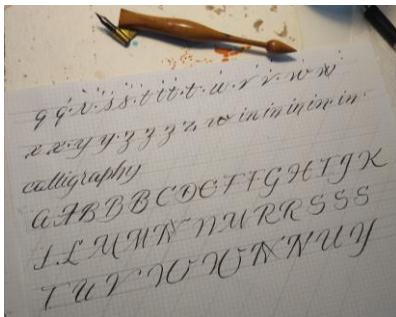 q q r s s t tt t u v v w w
x x y y z z z z w in in in in in
calligraphy
A A B B B C D E F F G H I J K
L L M M N N M R R S S S
T U V W W N N U Y